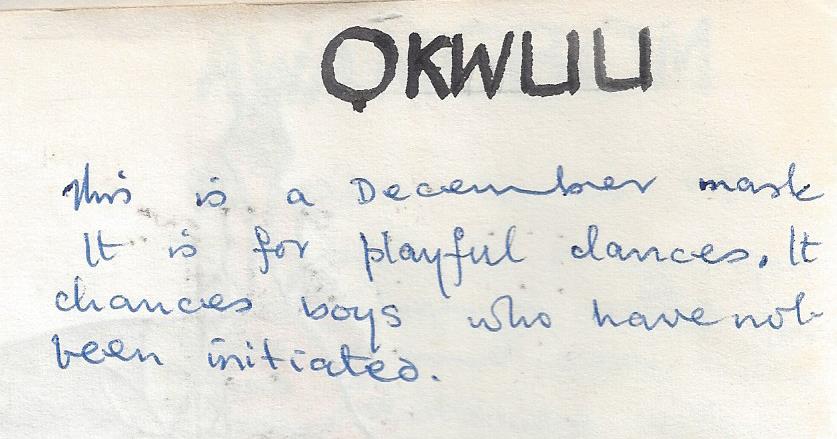 ỌKWUU
This is a December mask
It is for playful dances. It
chances boys who have not
been initiated.